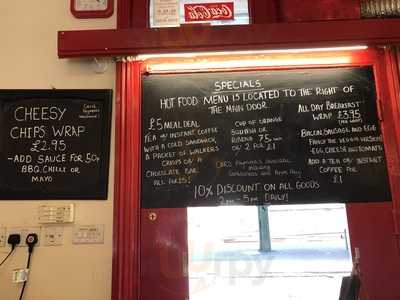 Coca-Cola
CHEESY
CHIPS WRAP
£2.95
-ADD SAUCE FOR 50p
BBQ, CHILLI OR
MAYO
Card
Payments
Welcome!
SPECIALS
HOT FOOD MENU IS LOCATED TO THE RIGHT OF
THE MAIN DOOR
£5 MEAL DEAL
TEA OR INSTANT COFFEE
WITH A COLD SANDWICH,
A PACKET OF WALKERS
CRISPS OR A
CHOCOLATE BAR,
ALL FOR £5!
CUP OF ORANGE
SQUASH OR
RIBENA 75p
OR 2 FOR £1
Card Payments
and Apple Pay
ALL DAY BREAKFAST
WRAP £3.95
BACON, SAUSAGE AND EGG
FANCY THE VEGGIE VERSION?
-EGG, CHEESE AND TOMATO
ADD A TEA OR INSTANT
COFFEE FOR
£1
10% DISCOUNT ON ALL GOODS
2pm - 5pm DAILY!